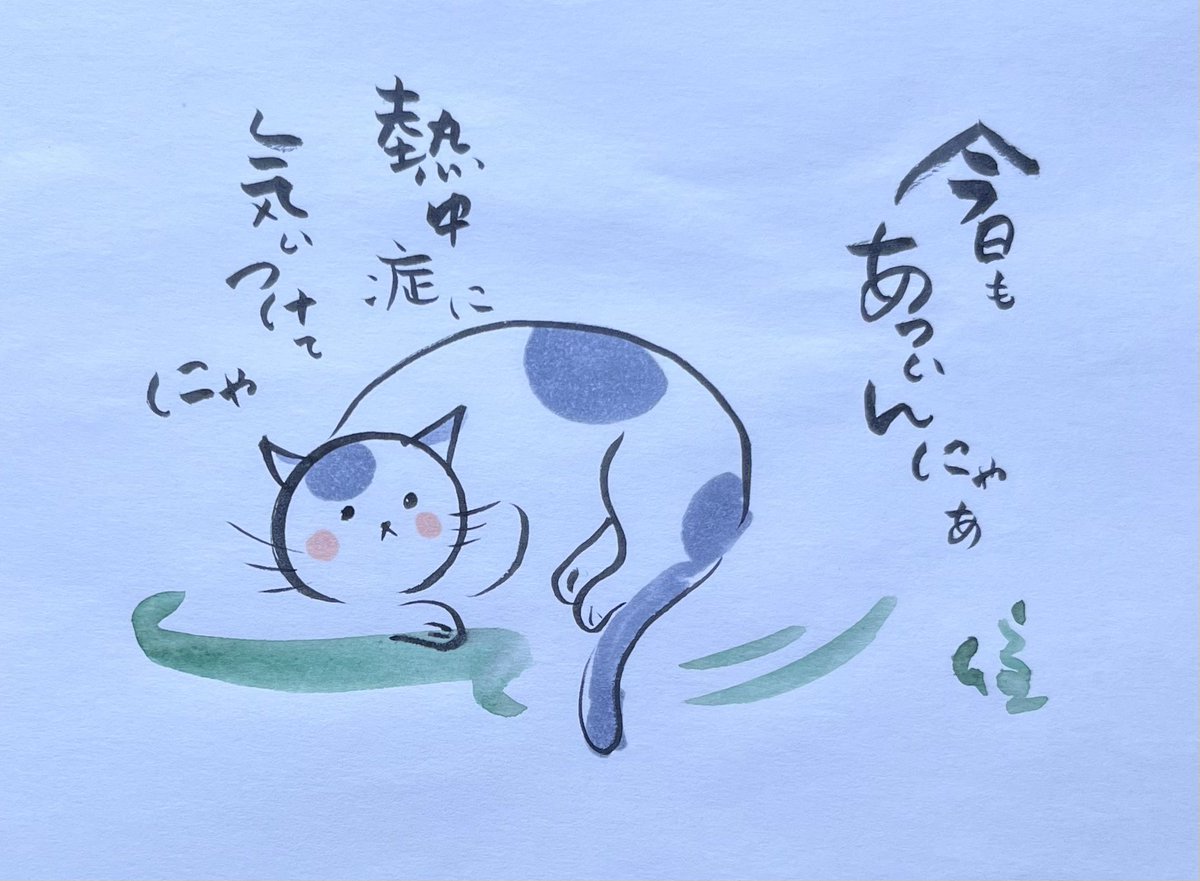 今日も
あついんにゃあ
熱中症に
気いつけて
にゃ